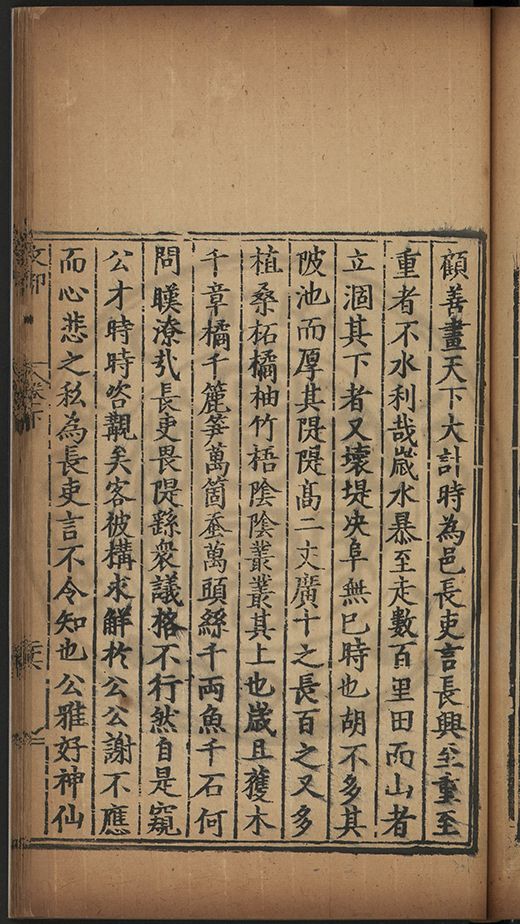 顧善畫天下大計時為邑長吏言長興至重至
重者不水利哉歲水暴至走數百里田而山者
立涸其下者又壞堤决阜無已時也胡不多其
陂池而厚其隄隄高二丈廣十之長百之又多
植桑柘橘柚竹梧陰陰叢叢其上也歲且獲木
千章橘千簏筭萬箇蚕萬頭絲千兩魚千石何
問暵潦㢤長吏畏隄繇衆議格不行然自是窺
公才時時咨覯矣客彼構求解於公公謝不應
而心悲之私為長吏言不令知也公雅好神仙